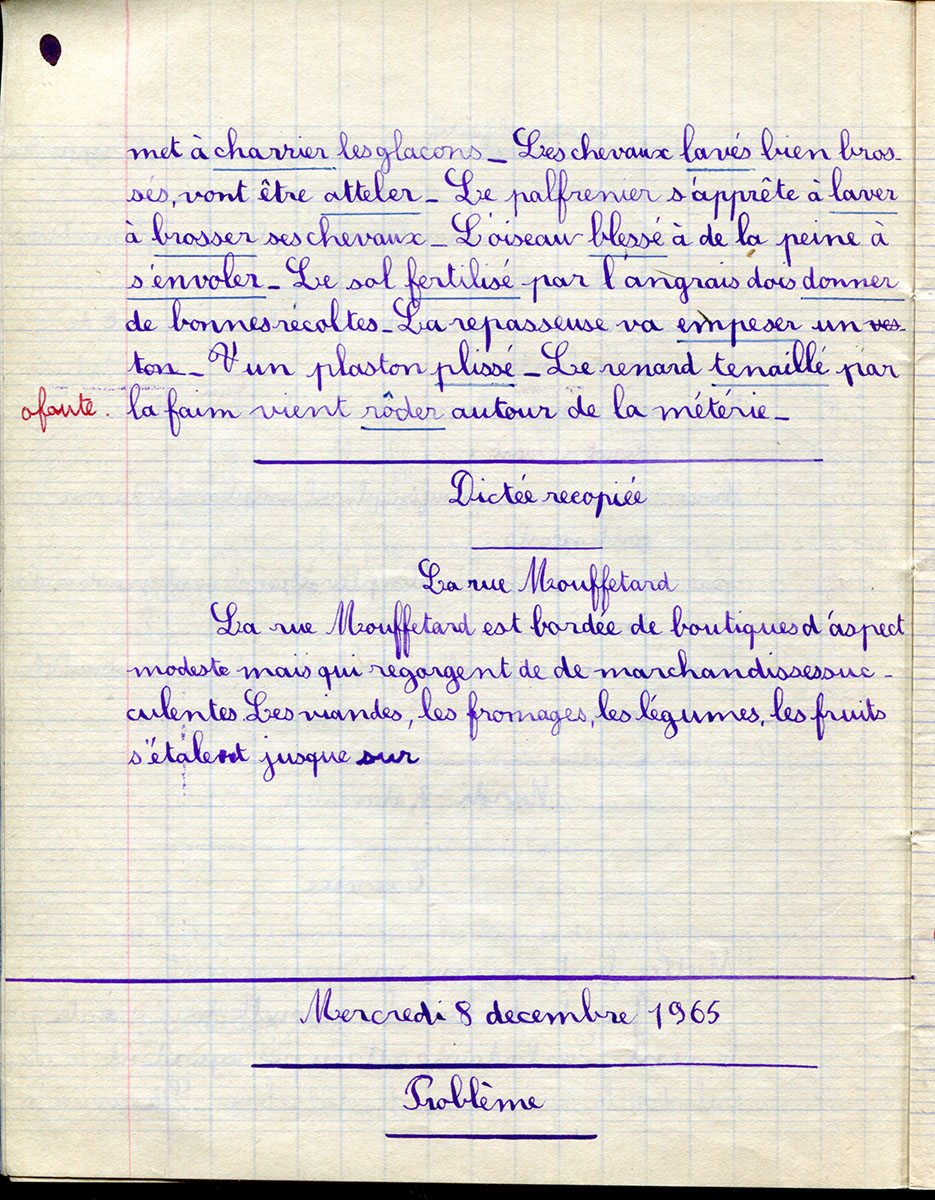 met à charrier les glacons_ Les chevaux lavés bien bros-
sés, vont être atteler_ Le palfrenier s'apprête à laver
à brosser ses chevaux_ L'oiseau blessé à de la peine à
s'envoler_ Le sol fertilisé par l'angrais dois donner
de bonnes récoltes_ La repasseuse va empeser un ves-
ton_ V un plaston plissé_ Le renard tenaillé par
0 faute. la faim vient rôder autour de la métérie_
Dictée recopiée
La rue Mouffetard
La rue Mouffetard est bordée de boutiques d'aspect
modeste mais qui regorgent de de marchandisses suc-
culentes. Les viandes, les fromages, les légumes, les fruits
s'étalent jusque sur
Mercredi 8 decembre 1965
Problème